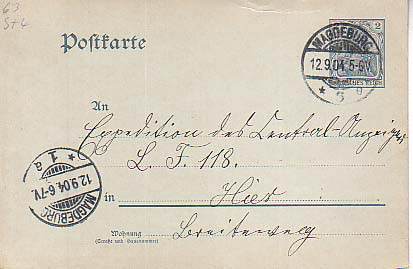 63
St 6
Postkarte
2
MAGDEBURG
12.9.04.5-6V.
* 5 g
An
Expedition des Central-Anzeiger
L. F. 118.
* 1 a
12.9.04.6-7V.
MAGDEBURG
in Hier
Wohnung
(Straße und Hausnummer)
Breiteweg